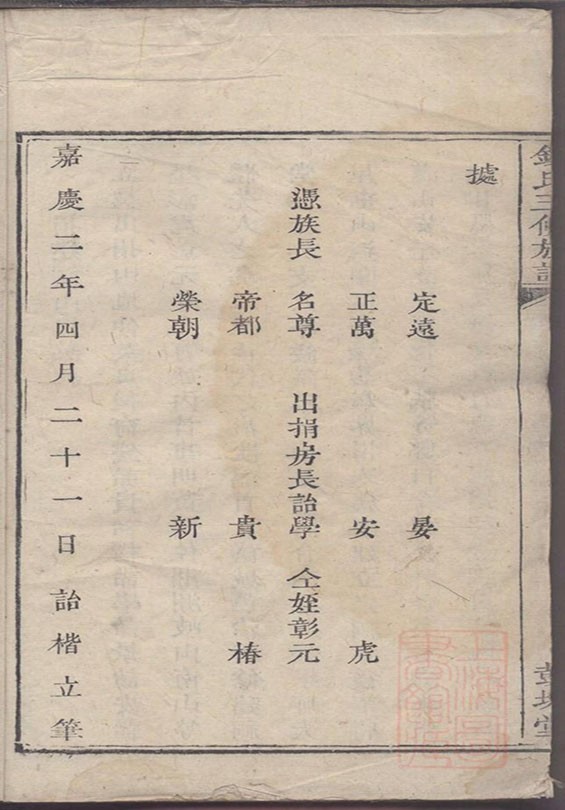 據
定遠 晏
正萬 安 虎
憑族長 名尊 出捐房長詒學 仝姪彰元
帝都 貴 椿
榮朝 新
嘉慶二年四月二十一日 詒楷立筆
氏三修族譜